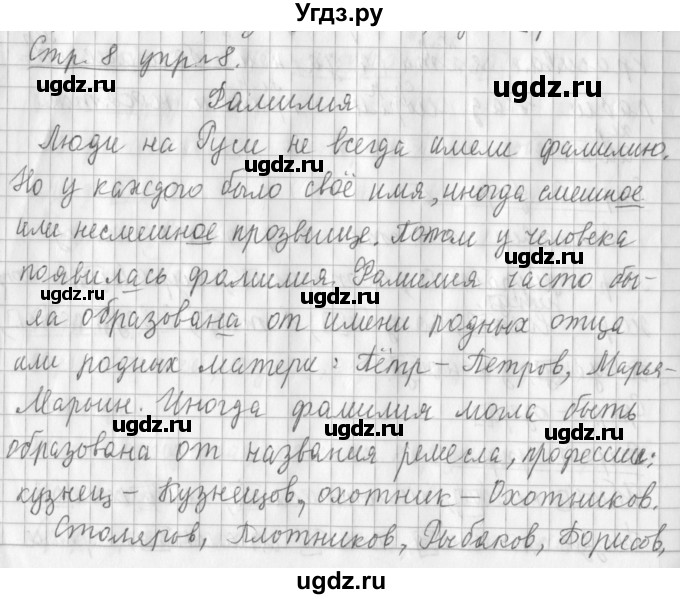 Угдз.ру
Стр. 8 упр. 8.
Фамилия
Люди на Руси не всегда имели фамилию.
Но у каждого было своё имя, иногда смешное
или несмешное прозвище. Потом у человека
появилась фамилия. Фамилия часто бы-
ла образована от имени родных отца
или родных матери: Пётр – Петров, Марья–
Марьин. Иногда фамилия могла быть
образована от названия ремесла, профессии:
кузнец – Кузнецов, охотник – Охотников.
Столяров, Плотников, Рыбаков, Борисов,
ugdz.ru